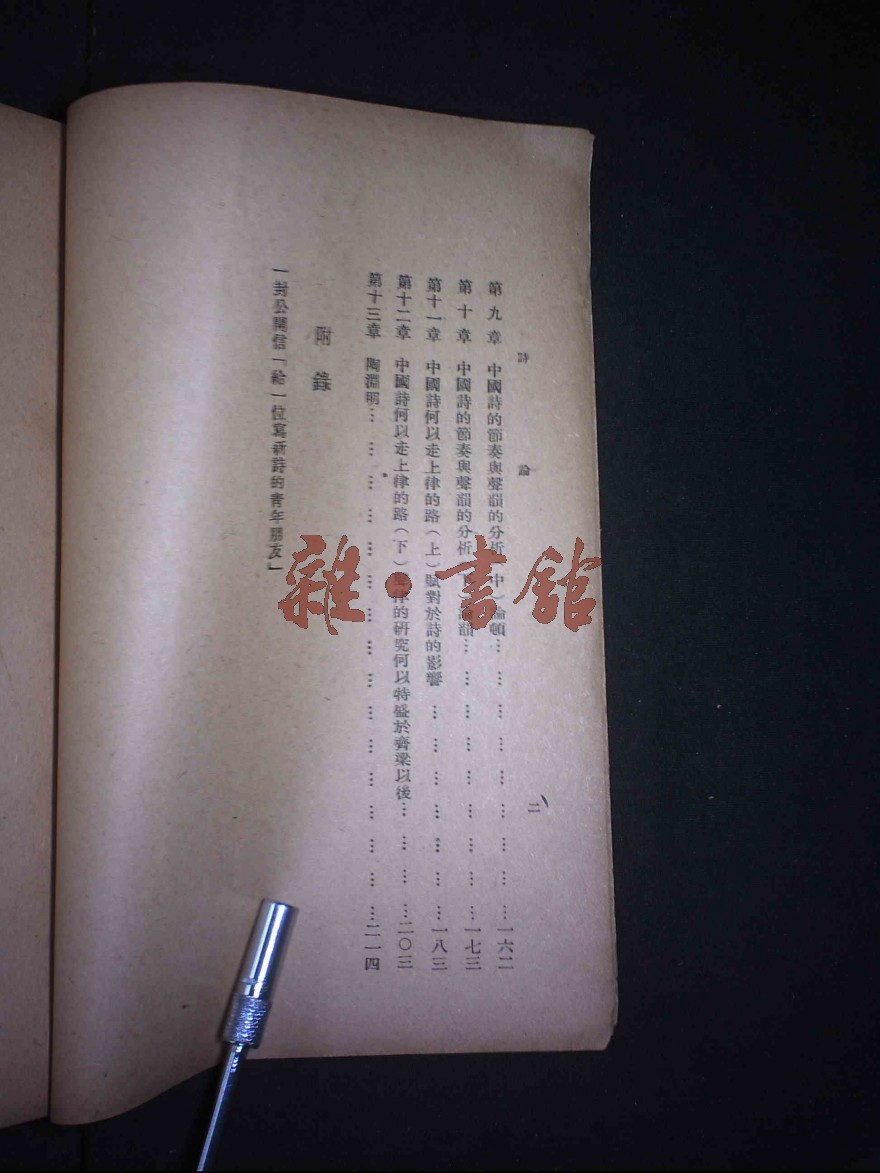 詩 論 二
第九章 中國詩的節奏與聲韻的分析(中)論頓…………………………一六二
第十章 中國詩的節奏與聲韻的分析(下)論韻…………………………一七三
第十一章 中國詩何以走上律的路(上)賦對於詩的影響………………………一八三
第十二章 中國詩何以走上律的路(下)聲律的研究何以特盛於齊梁以後……………二〇三
第十三章 陶淵明………………………………………………二一四
附錄
一封公開信「給一位寫新詩的青年朋友」
雜·書館